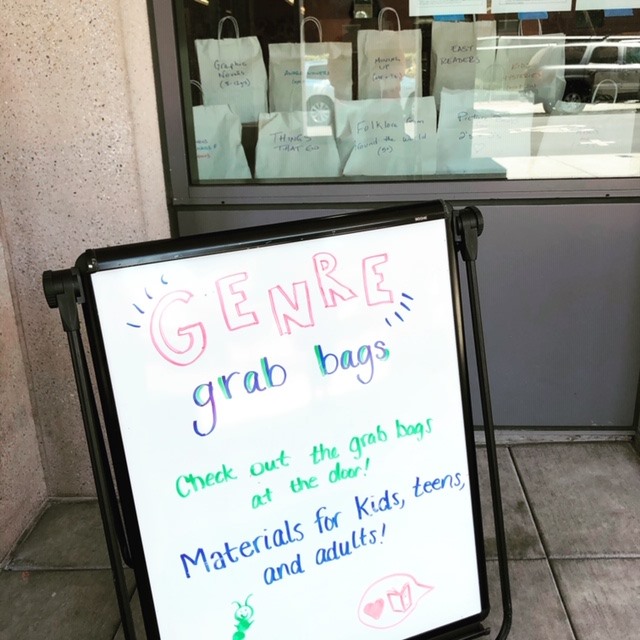 Graphic
Novels
EASY
READERS
THINGS
THAT GO
Folklore from
around the world
GENRE
grab bags
Check out the grab bags
at the door!
Materials for kids, teens,
and adults!